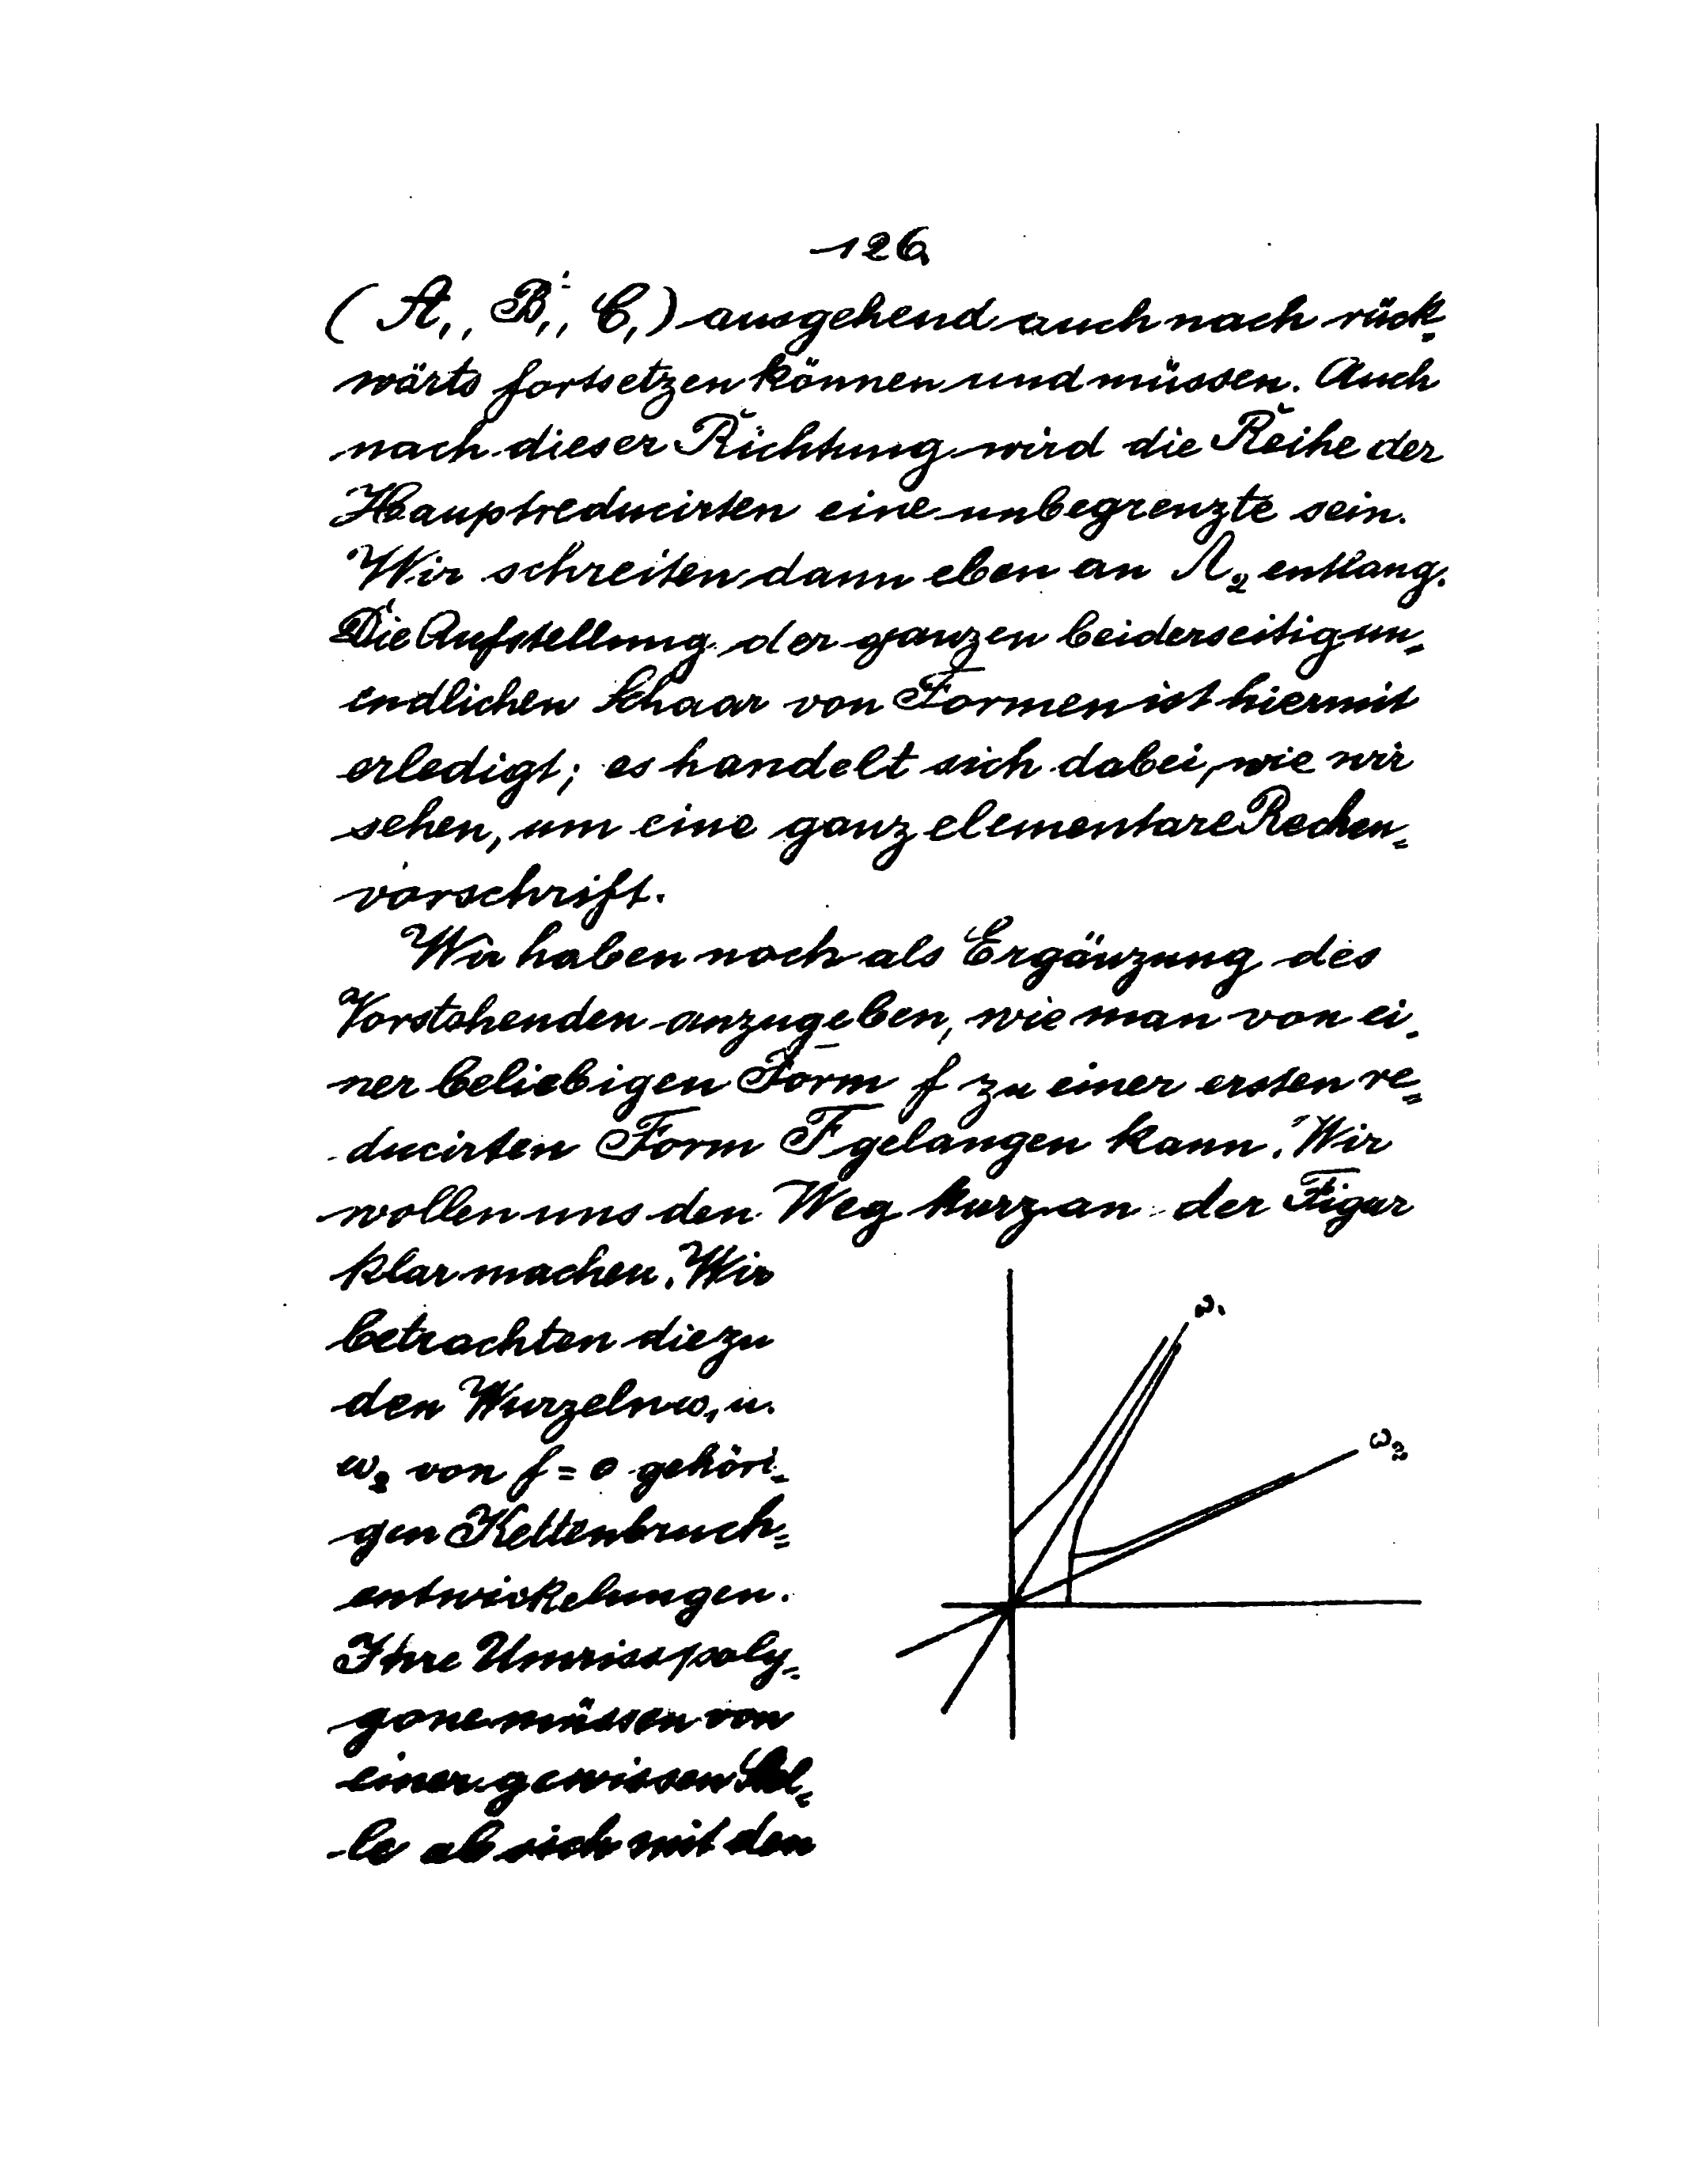 126
(A₁, B₁, C₁) ausgehend auch nach rück-
wärts fortsetzen können und müssen. Auch
nach dieser Richtung wird die Reihe der
Hauptreducirten eine unbegrenzte sein.
Wir schreiten dann eben an Λ₂ entlang.
Die Aufstellung der ganzen beiderseitig un-
endlichen Schaar von Formen ist hiermit
erledigt; es handelt sich dabei, wie wir
sehen, um eine ganz elementare Rechen-
vorschrift.
Wir haben noch als Ergänzung des
Vorstehenden anzugeben, wie man von ei-
ner beliebigen Form f zu einer ersten re-
ducirten Form F gelangen kann. Wir
wollen uns den Weg kurz an der Figur
klar machen. Wir
betrachten die zu
den Wurzeln ω₁ u.
ω₂ von f = 0 gehöri-
gen Kettenbruch-
entwickelungen.
Ihre Umrisspoly-
gone müssen von
einer gewissen Stel-
le ab sich mit den
ω₁
ω₂